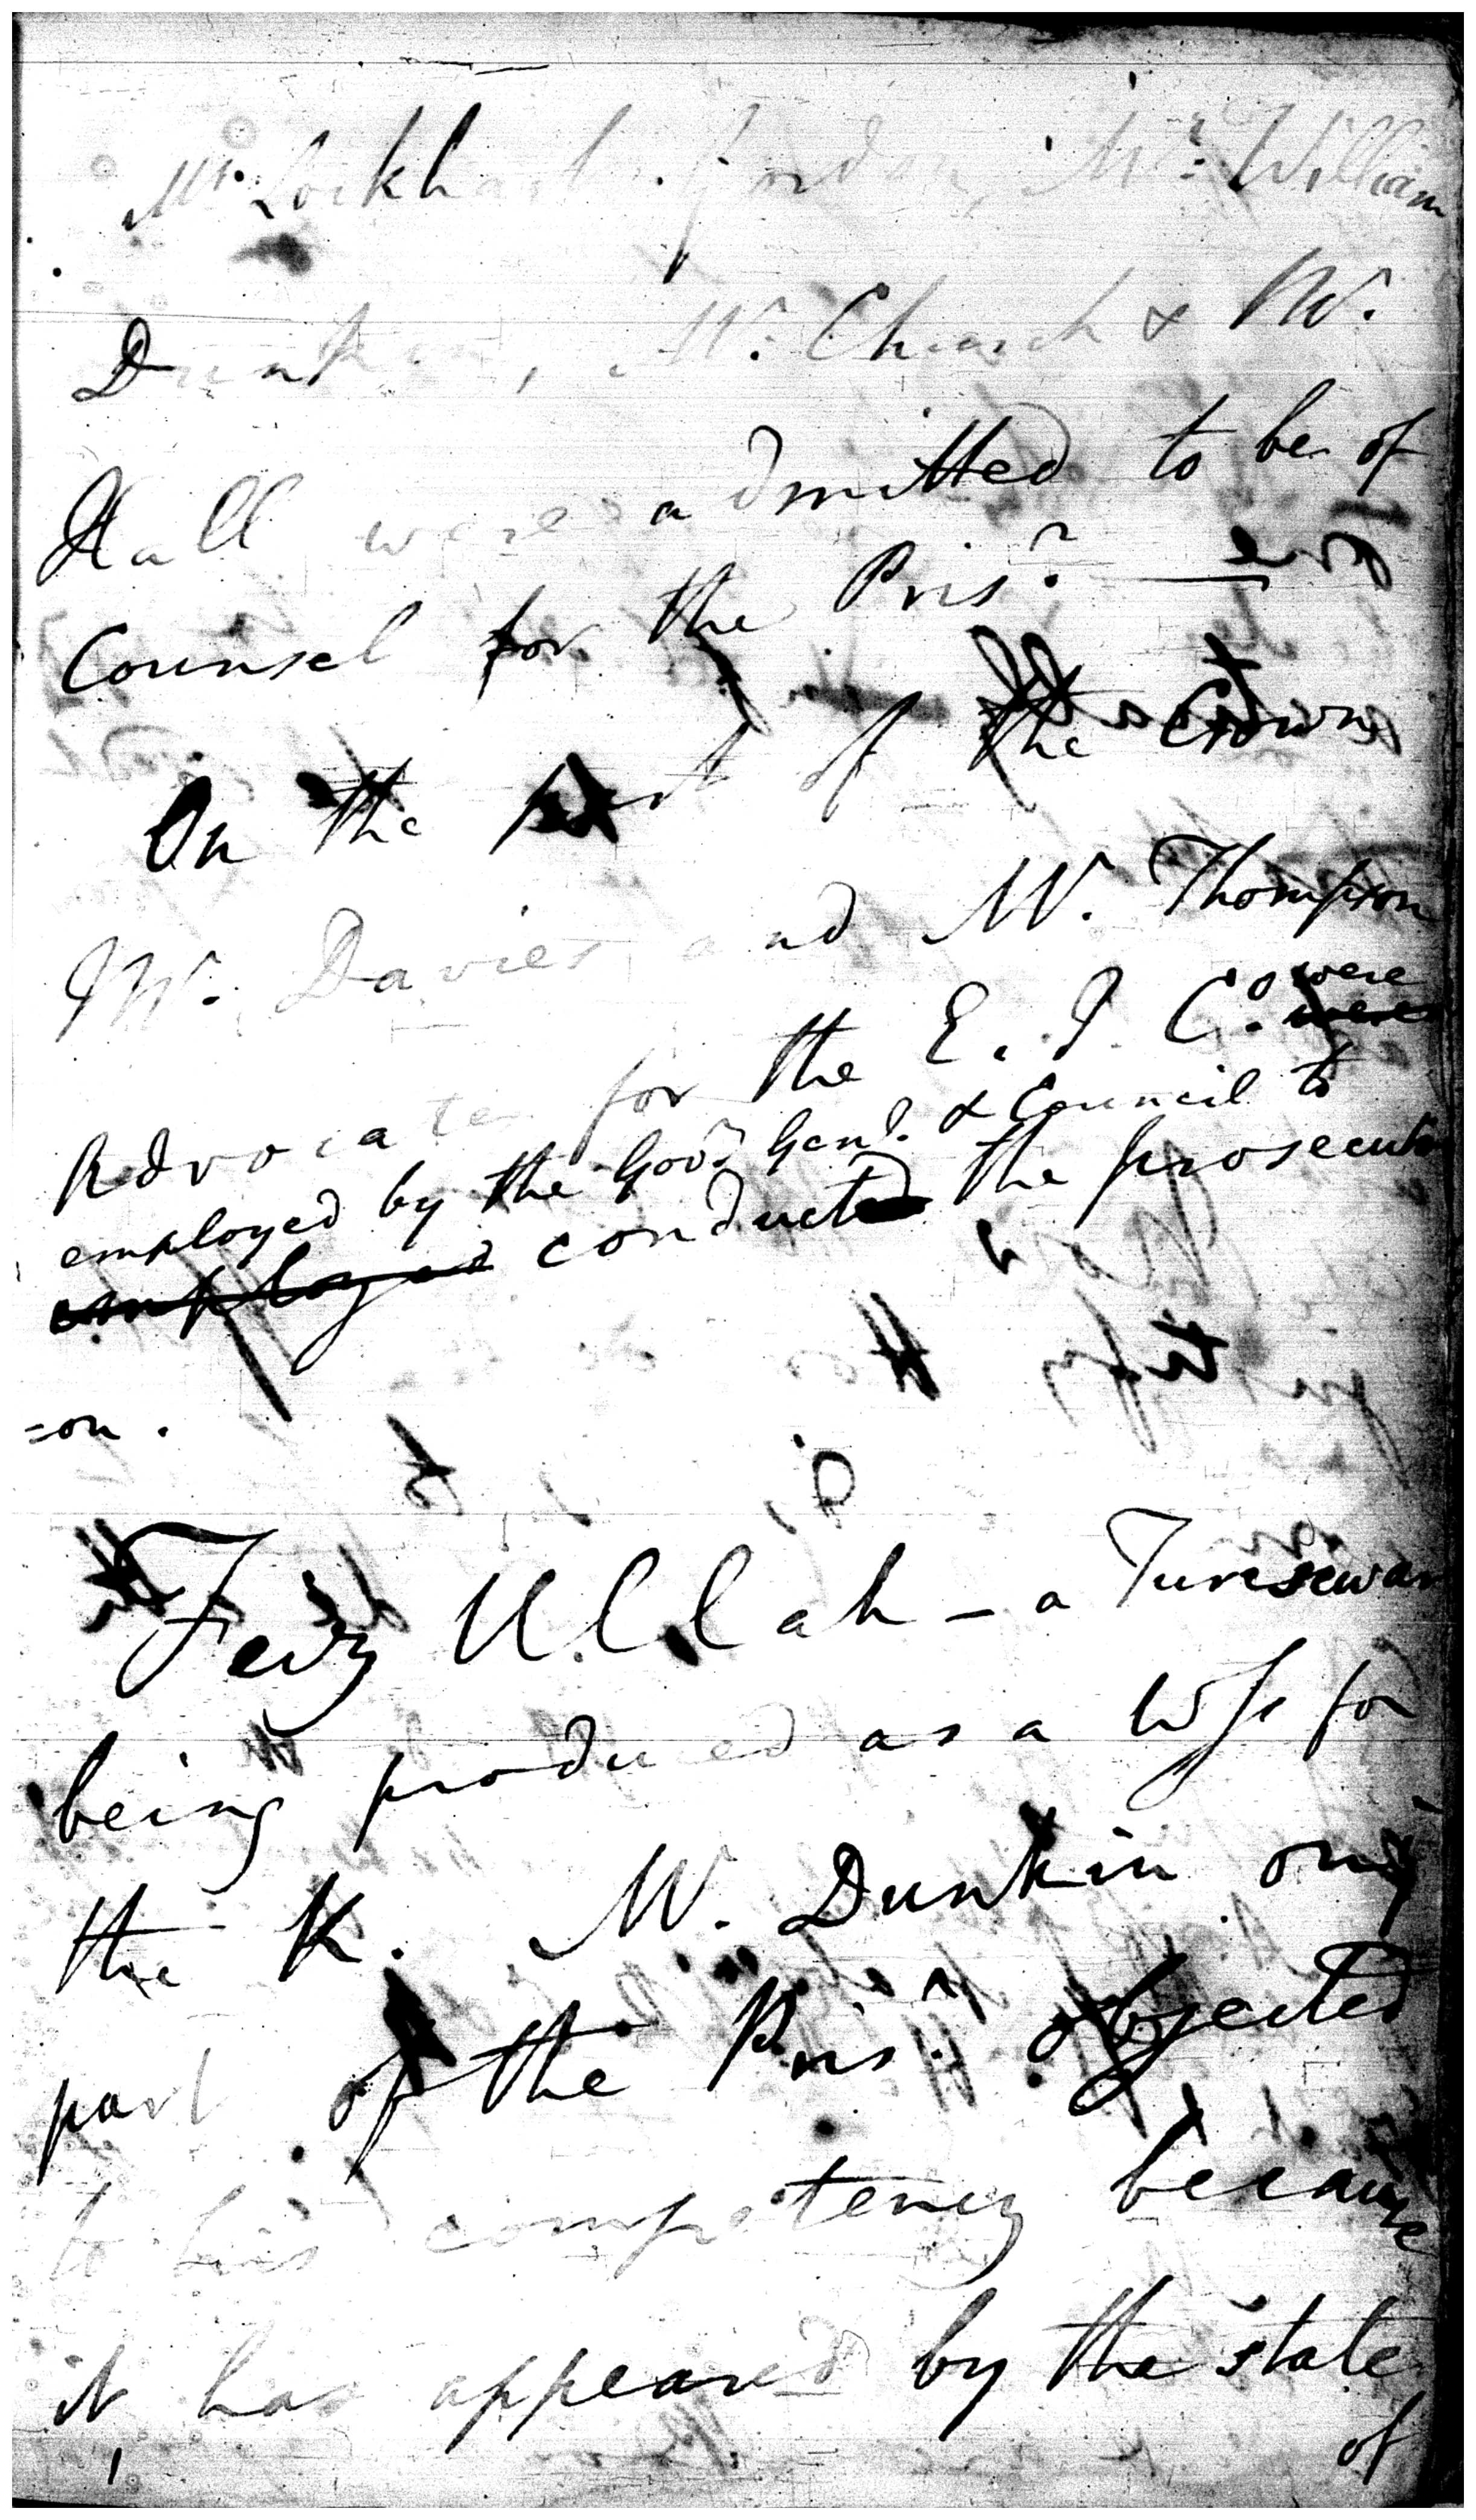 Mr. Lockhart, Jordan, Mr. William
Dunkin, Mr. Church & Mr.
Hall were admitted to be of
Counsel for the Prisr. —
On the part of the Crown
Mr. Davies and Mr. Thompson
Advocate for the E. I. Co. were were
employed by the Govr. Genl. & Council to
employed conducted the prosecuti
=on.
Feiz Ullah - a Turksewar
being produced as a Wss for
the K. Mr. Dunkin on ye
part of the Prisr. objected
to his competency because
it has appeared by the state
of